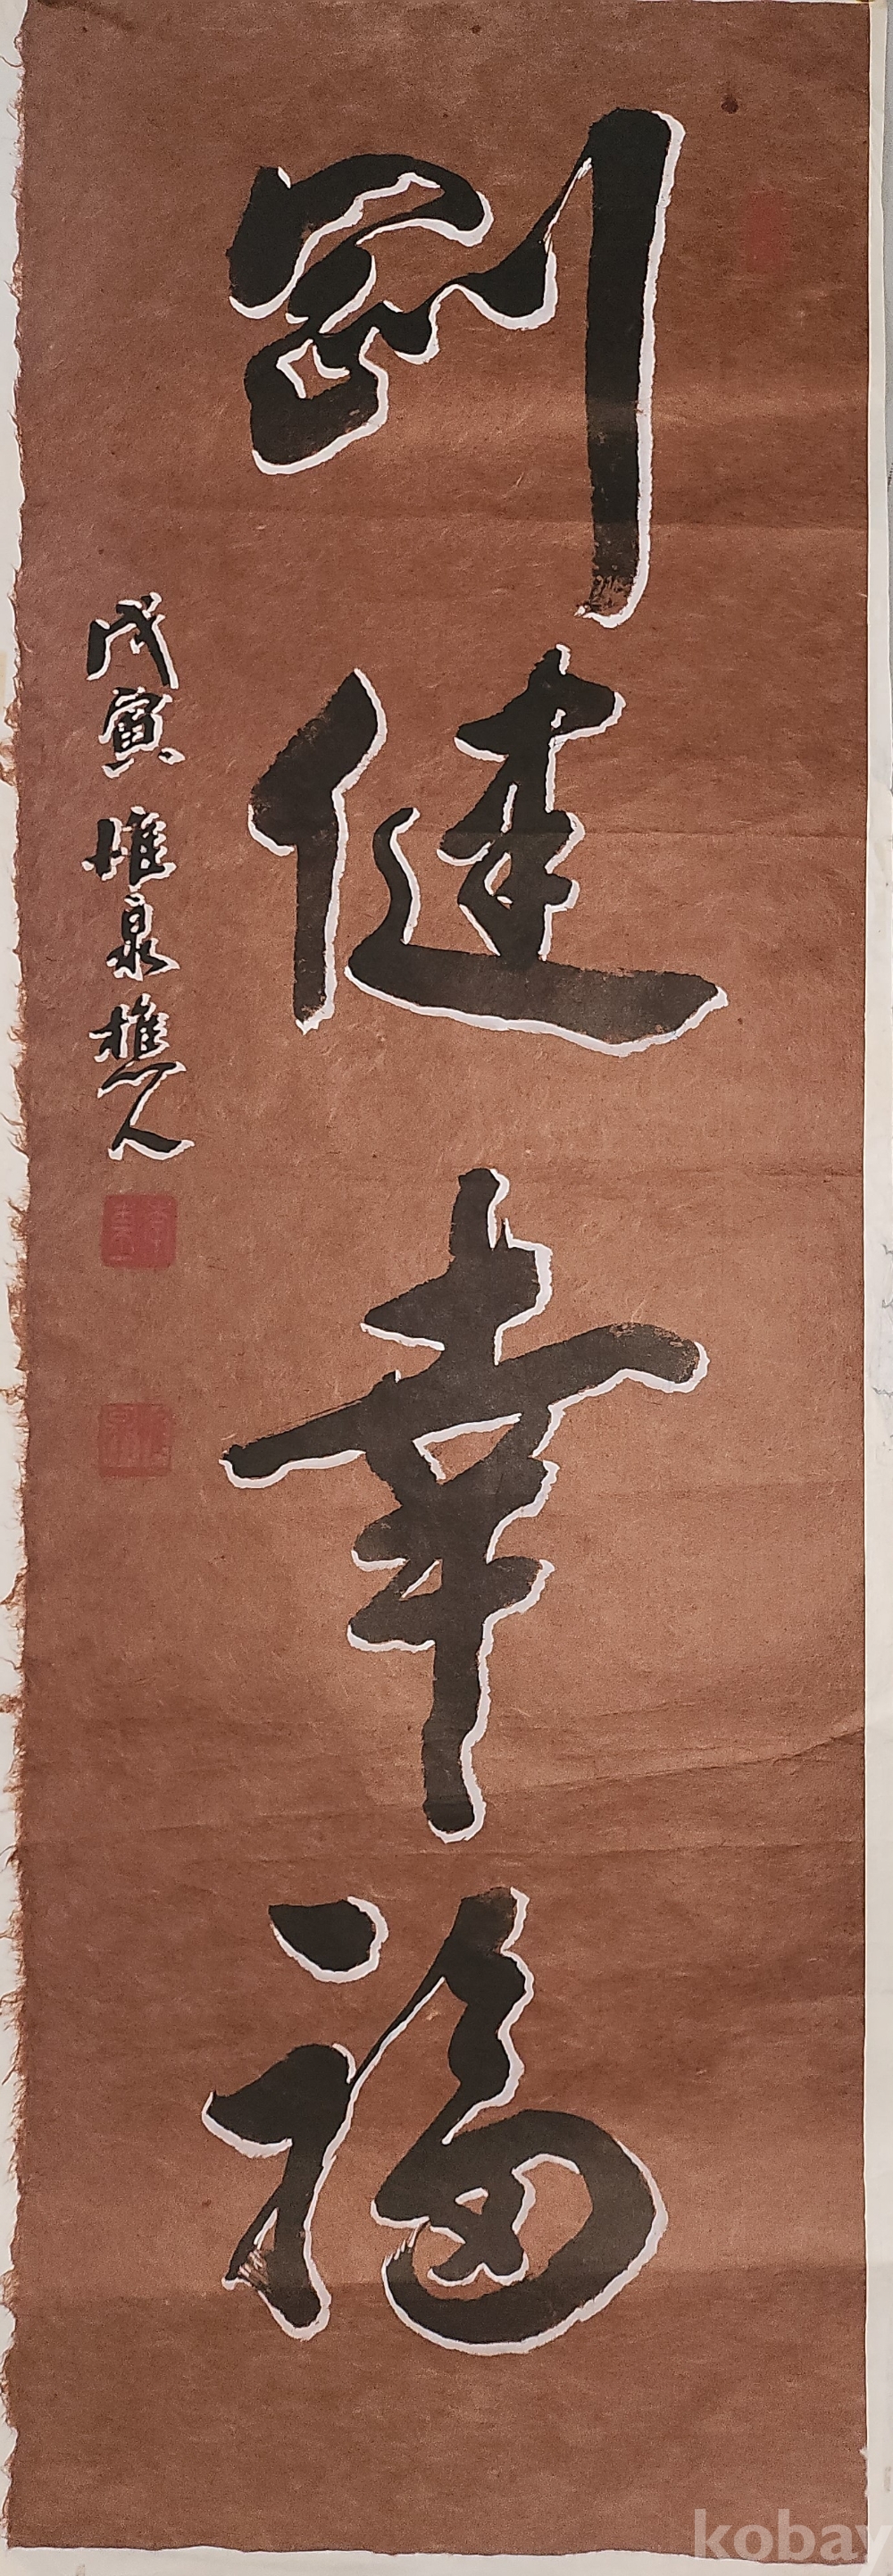 剛健幸福
戊寅 惟泉樵人
kobay